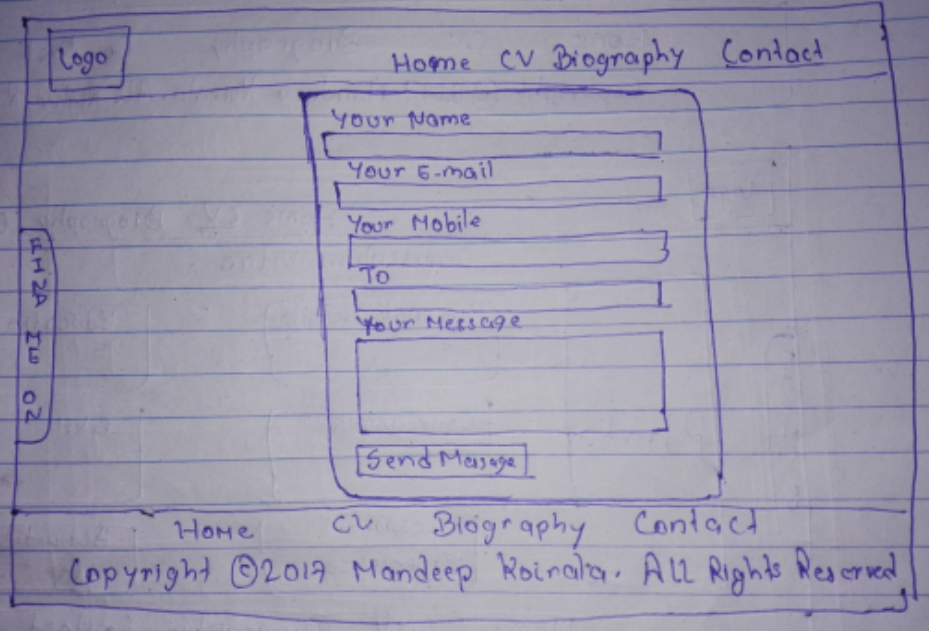 Logo
Home CV Biography Contact
Your Name
Your E-mail
Your Mobile
To
Your Message
Send Message
Home CV Biography Contact
Copyright ©2017 Mandeep Koirala. All Rights Reserved